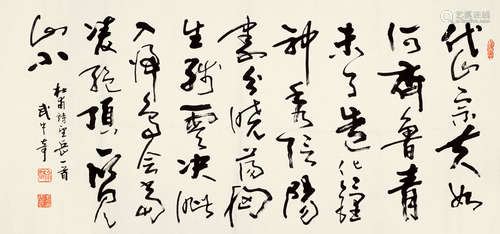 岱宗夫如
何齊魯青
未了造化鍾
神秀陰陽
割昏曉蕩胸
生層雲決眥
入歸鳥會當
凌絕頂一覽衆
山小
杜甫詩望岳一首
武中奇